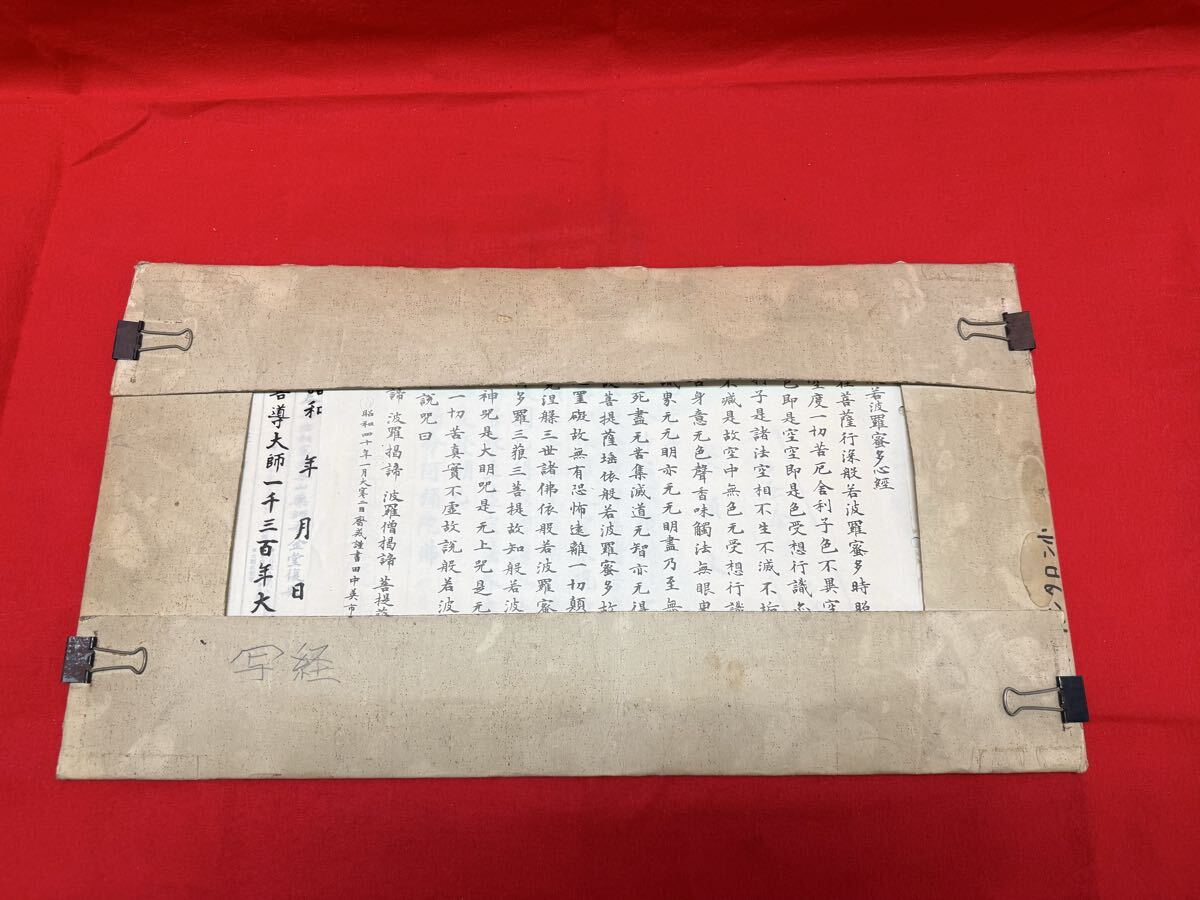 若波羅蜜多心經
菩薩行深般若波羅蜜多時
度一切苦厄舍利子色不異空
即是空空即是色受想行識
子是諸法空相不生不滅不垢
不減是故空中無色无受想行識
身意无色聲香味觸法無眼
界无无明亦无无明盡乃至無
死盡无苦集滅道无智亦无得
菩提薩埵依般若波羅蜜多故
罣礙故無有恐怖遠離一切顛
涅槃三世諸佛依般若波羅蜜
多羅三藐三菩提故知般若波
神咒是大明咒是无上咒是无
一切苦真實不虛故說般若波
說咒曰
諦 波羅揭諦 波羅僧揭諦 菩提薩
昭和四十年一月大寒二日齋戒謹書田中英市
昭和 年 月 日
善導大師一千三百年大
写経